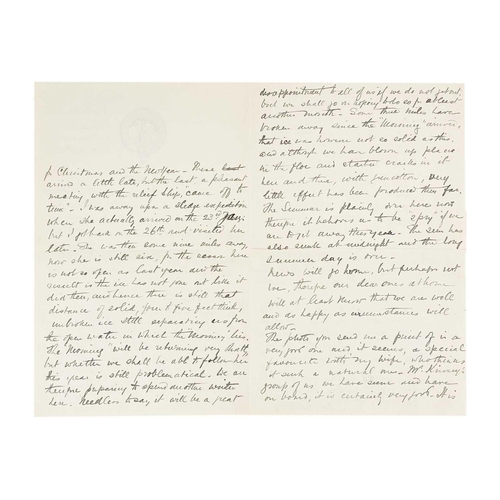 for Christmas and the New Year. These
arrived a little late, but the last a pleasant
meeting with the relief ship, came off to
time. I was away upon a sledge expedition
when she actually arrived on the 23rd Jan.
but I got back on the 26th and visited her
later. She was then some nine miles away,
now she is still six, for the season here
is not so open as last year and the
result is the ice has not gone out like it
did then, and hence there is still that
distance of solid, four & five feet thick,
unbroken ice still separating us from
the open water in which the Morning lies.
The Morning will be returning very shortly
but whether we shall be able to follow her
this year is still problematical. We are
therefore preparing to spend another winter
here. Needless to say, it will be a great
disappointment to all of us if we do not get out,
but we shall go on hoping to do so for at least
another month. Some three miles have
broken away since the "Morning" arrived,
that ice was however not so solid as this
and although we have blown up places
in the floe and started cracks in it
here and there, with guncotton, very
little effect has been produced thus far.
The summer is plainly over here now
therefore it behoves us to be "spry" if we
are to get away this year. The sun has
also sunk at midnight and the long
summer day is over.
News will go home, but perhaps not
we, therefore our dear ones at home
will at least know that we are well
and as happy as circumstances will
allow.
The photo you send me a print of is a
very good one and it secures, a special
favourite with my wife, who thinks
it such a natural one. Mr. Kinsey's
group of us we have seen and have
on board, it is certainly very good. It is